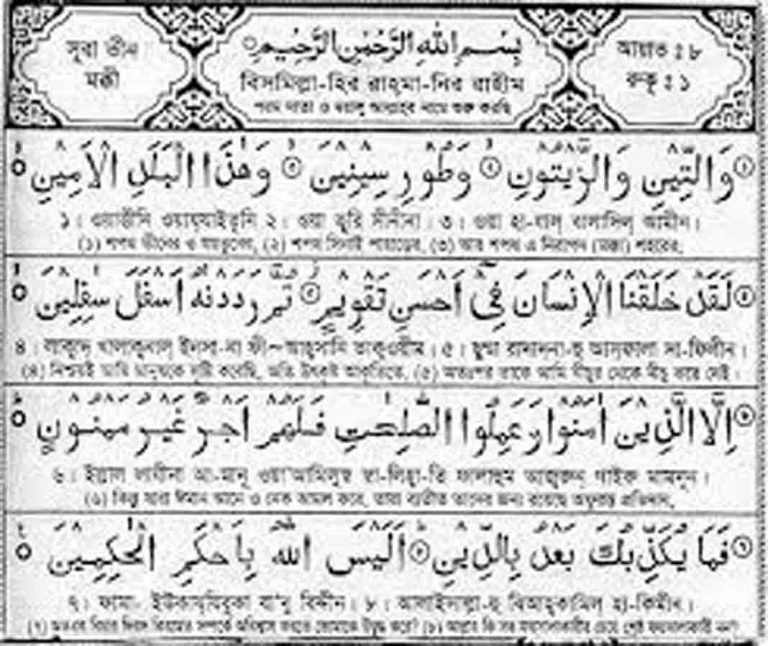 সূরা ত্বীন
মক্কী
بِسْمِ اللّٰهِ الرَّحْمٰنِ الرَّحِيْمِ
বিসমিল্লা-হির রাহমা-নির রাহীম
পরম দাতা ও দয়ালু আল্লাহর নামে শুরু করছি
আয়াত : ৮
রুকূ : ১
وَالتِّيْنِ وَالزَّيْتُوْنِ ۝ وَطُوْرِ سِيْنِيْنَ ۝ وَهٰذَا الْبَلَدِ الْاَمِيْنِ ۝
১। ওয়াত্তীনি ওয়ায্যাইতূনি ২। ওয়া তূরি সীনীনা। ৩। ওয়া হা-যাল্ বালাদিল্ আমীন।
(১) শপথ তীনের ও যয়তুনের, (২) শপথ সিনাই পাহাড়ের, (৩) আর শপথ এ নিরাপদ (মক্কা) শহরের,
لَقَدْ خَلَقْنَا الْاِنْسَانَ فِيْٓ اَحْسَنِ تَقْوِيْمٍ ۝ ثُمَّ رَدَدْنٰهُ اَسْفَلَ سٰفِلِيْنَ ۝
৪। লাক্বদ্ খালাক্ব্নাল্ ইন্সা-না ফী~ আহ্সানি তাক্ওয়ীম। ৫। ছুম্মা রাদাদ্না-হু আস্ফালা সা-ফিলীন।
(৪) নিশ্চয়ই আমি মানুষকে সৃষ্টি করেছি, অতি উৎকৃষ্ট আকৃতিতে, (৫) অতঃপর তাকে আমি নীচুর থেকে নীচু করে দেই।
اِلَّا الَّذِيْنَ اٰمَنُوْا وَعَمِلُوا الصّٰلِحٰتِ فَلَهُمْ اَجْرٌ غَيْرُ مَمْنُوْنٍ ۝
৬। ইল্লাল লাযীনা আ-মানূ ওয়া'আমিলুছ্ ছা-লিহা-তি ফালাহুম আজ্রুন্ গাইরু মাম্নূন।
(৬) কিন্তু যারা ঈমান আনে ও নেক আমল করে, তারা ব্যতীত তাদের জন্য রয়েছে অফুরন্ত প্রতিদান,
فَمَا يُكَذِّبُكَ بَعْدُ بِالدِّيْنِ ۝ اَلَيْسَ اللّٰهُ بِاَحْكَمِ الْحٰكِمِيْنَ ۝
৭। ফামা- ইউকায্যিবুকা বা'দু বিদ্দীন। ৮। আলাইসাল্লা-হু বিআহ্কামিল্ হা-কিমীন।